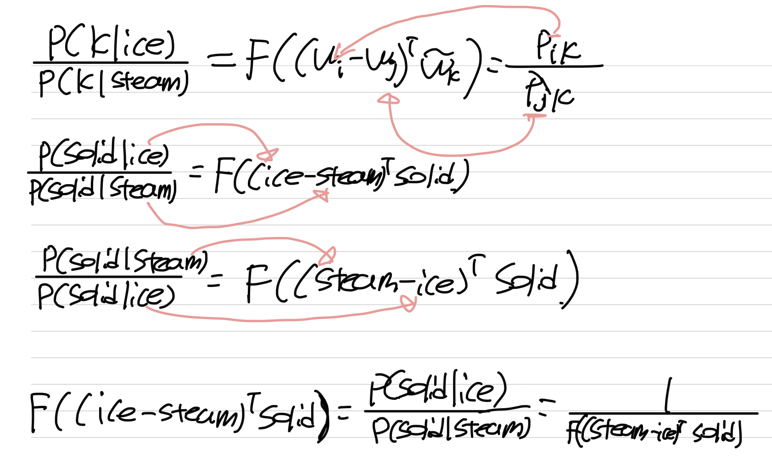 P(k|ice) / P(k|steam) = F((w_i - w_j)^T w̃_k) = P_ik / P_jk
P(solid|ice) / P(solid|steam) = F((ice-steam)^T solid)
P(solid|steam) / P(solid|ice) = F((steam-ice)^T solid)
F((ice-steam)^T solid) = P(solid|ice) / P(solid|steam) = 1 / F((steam-ice)^T solid)